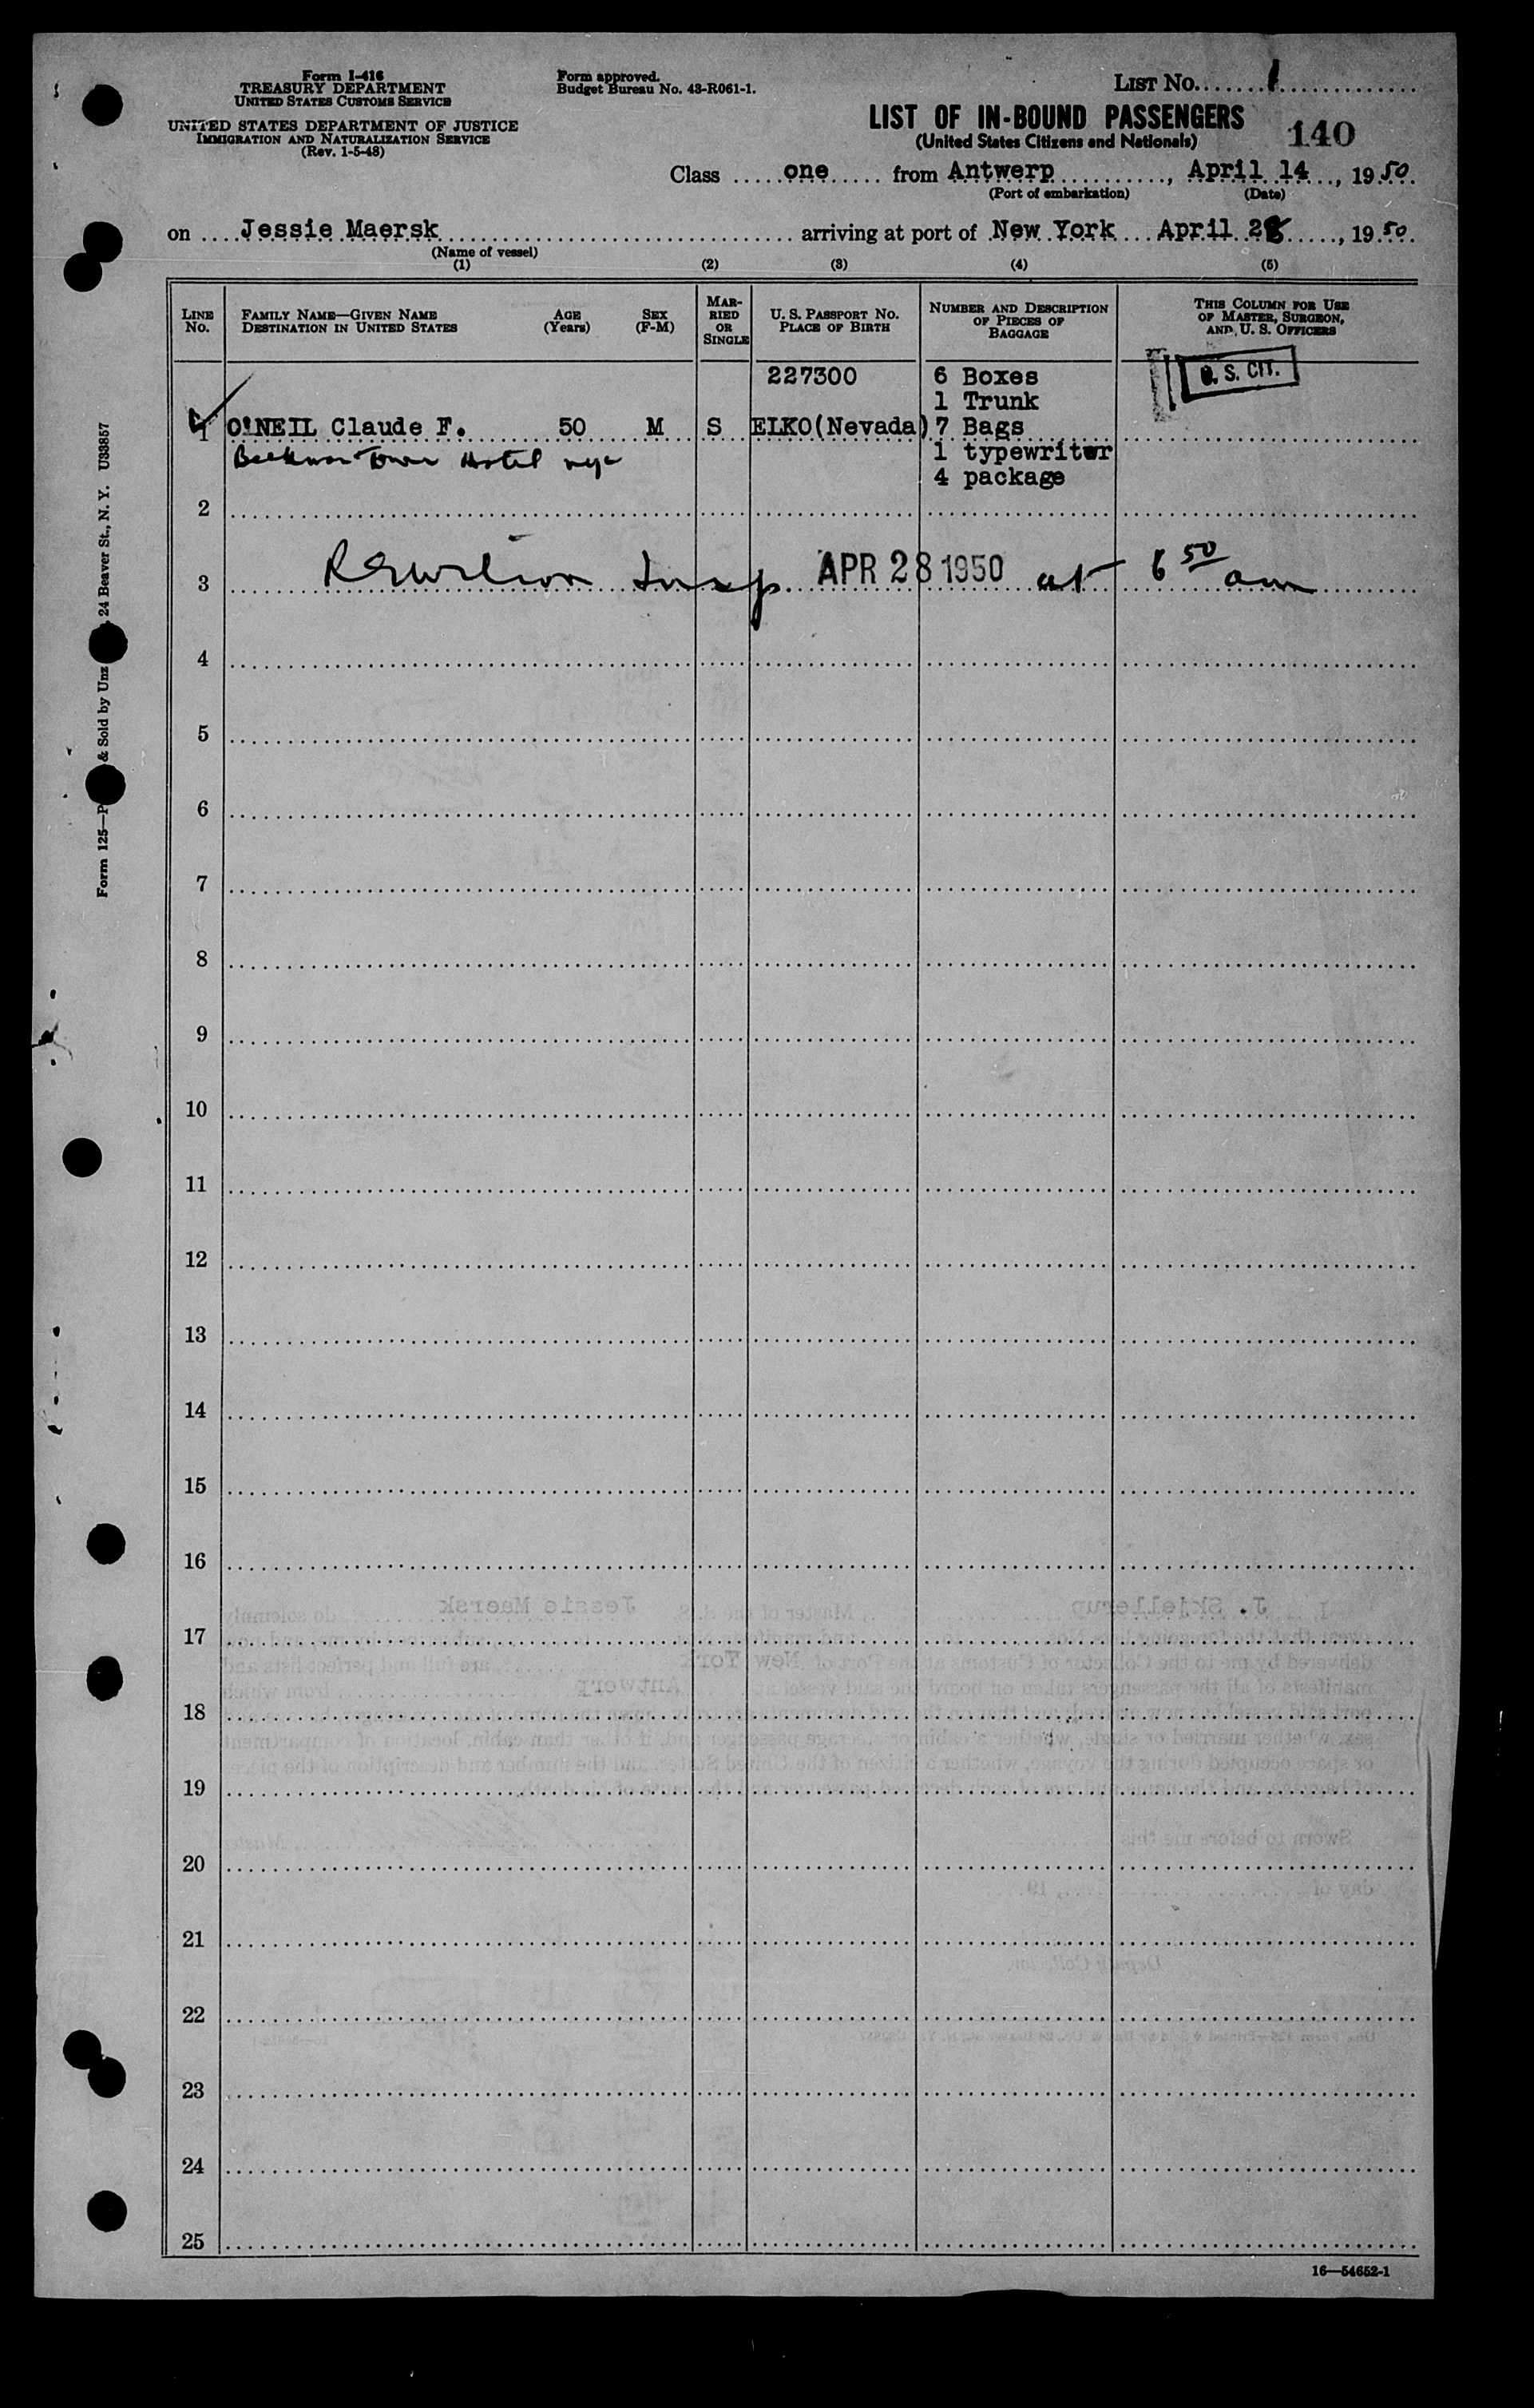 Form I-416
TREASURY DEPARTMENT
UNITED STATES CUSTOMS SERVICE
UNITED STATES DEPARTMENT OF JUSTICE
IMMIGRATION AND NATURALIZATION SERVICE
(Rev. 1-5-48)
Form approved.
Budget Bureau No. 43-R061-1.
LIST No. 1
LIST OF IN-BOUND PASSENGERS
(United States Citizens and Nationals)
140
Class one from Antwerp, April 14, 1950
(Port of embarkation) (Date)
on Jessie Maersk arriving at port of New York April 28, 1950
(Name of vessel)
(1) (2) (3) (4) (5)
LINE No.
FAMILY NAME—GIVEN NAME
DESTINATION IN UNITED STATES
AGE (Years)
SEX (F-M)
MARRIED OR SINGLE
U. S. PASSPORT No.
PLACE OF BIRTH
NUMBER AND DESCRIPTION OF PIECES OF BAGGAGE
THIS COLUMN FOR USE OF MASTER, SURGEON, AND U. S. OFFICERS
227300 6 Boxes U. S. CIT.
1 Trunk
1 O'NEIL Claude F. 50 M S ELKO(Nevada) 7 Bags
Beekman Tower Hotel nyc 1 typewriter
4 package
2
3 Insp. APR 28 1950 at 6 50 am
4
5
6
7
8
9
10
11
12
13
14
15
16
17
18
19
20
21
22
23
24
25
16—54652-1
Form 125—P & Sold by Unz 24 Beaver St., N. Y. U33857
J. Skjellerup Jessie Maersk
New York
Antwerp